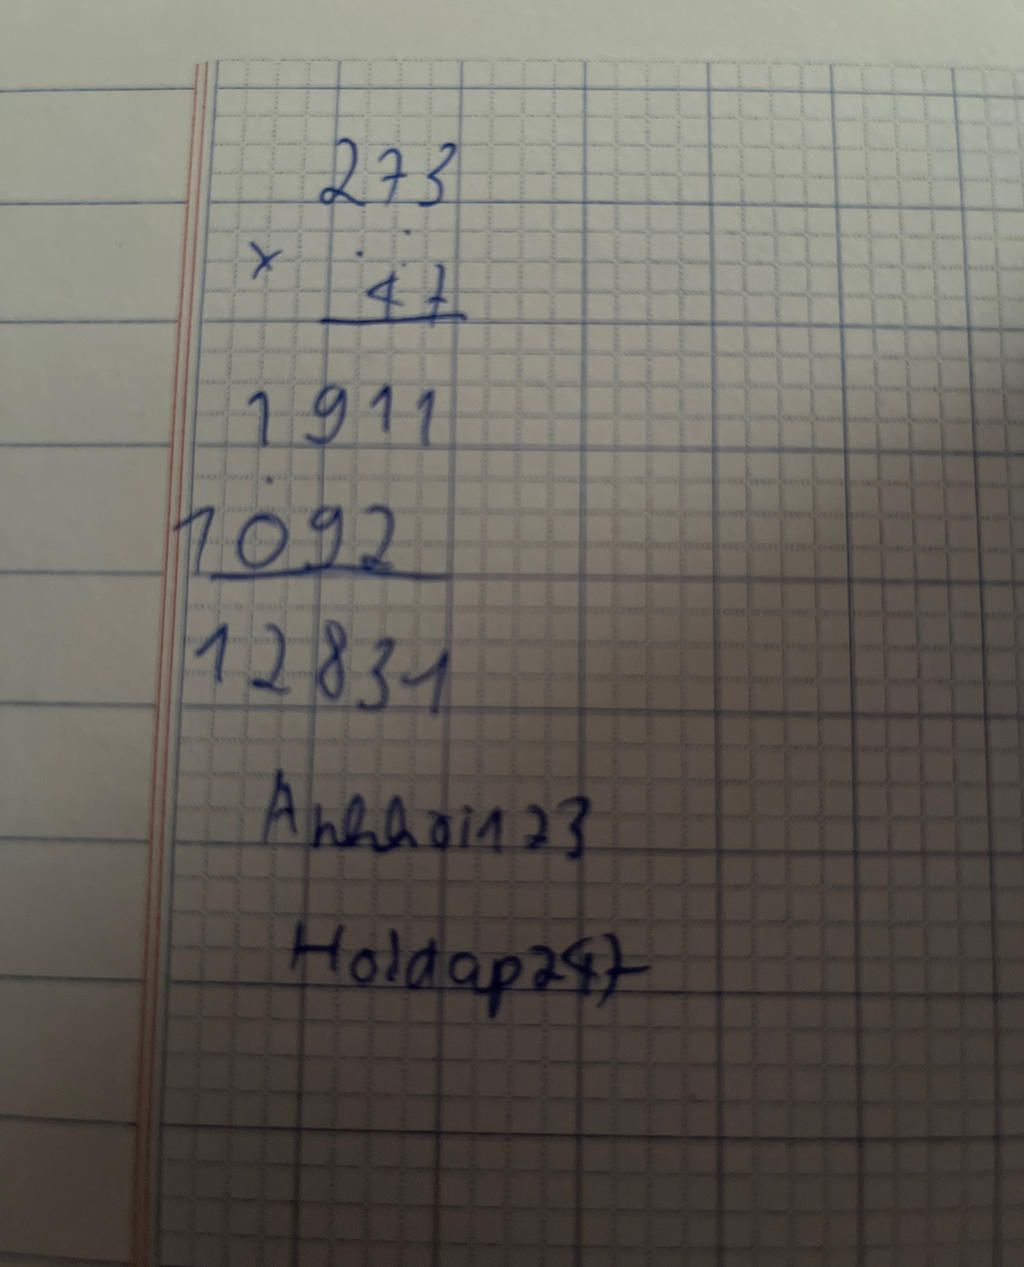 273
× 47
1911
1092
12831
Anhhoi123
Holdap247